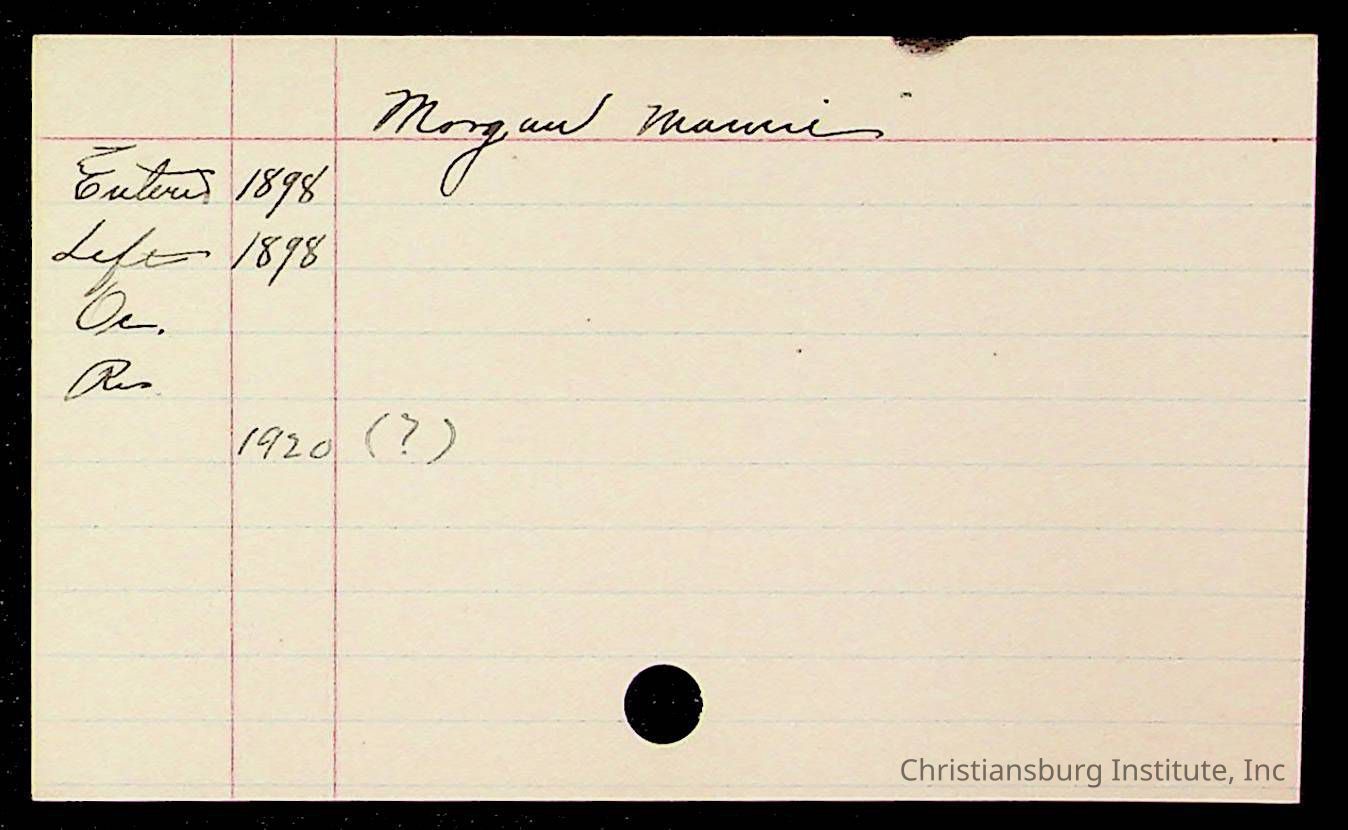 Morgan Mamie
Entered 1898
Left 1898
Oc.
Res.
1920 (?)
Christiansburg Institute, Inc